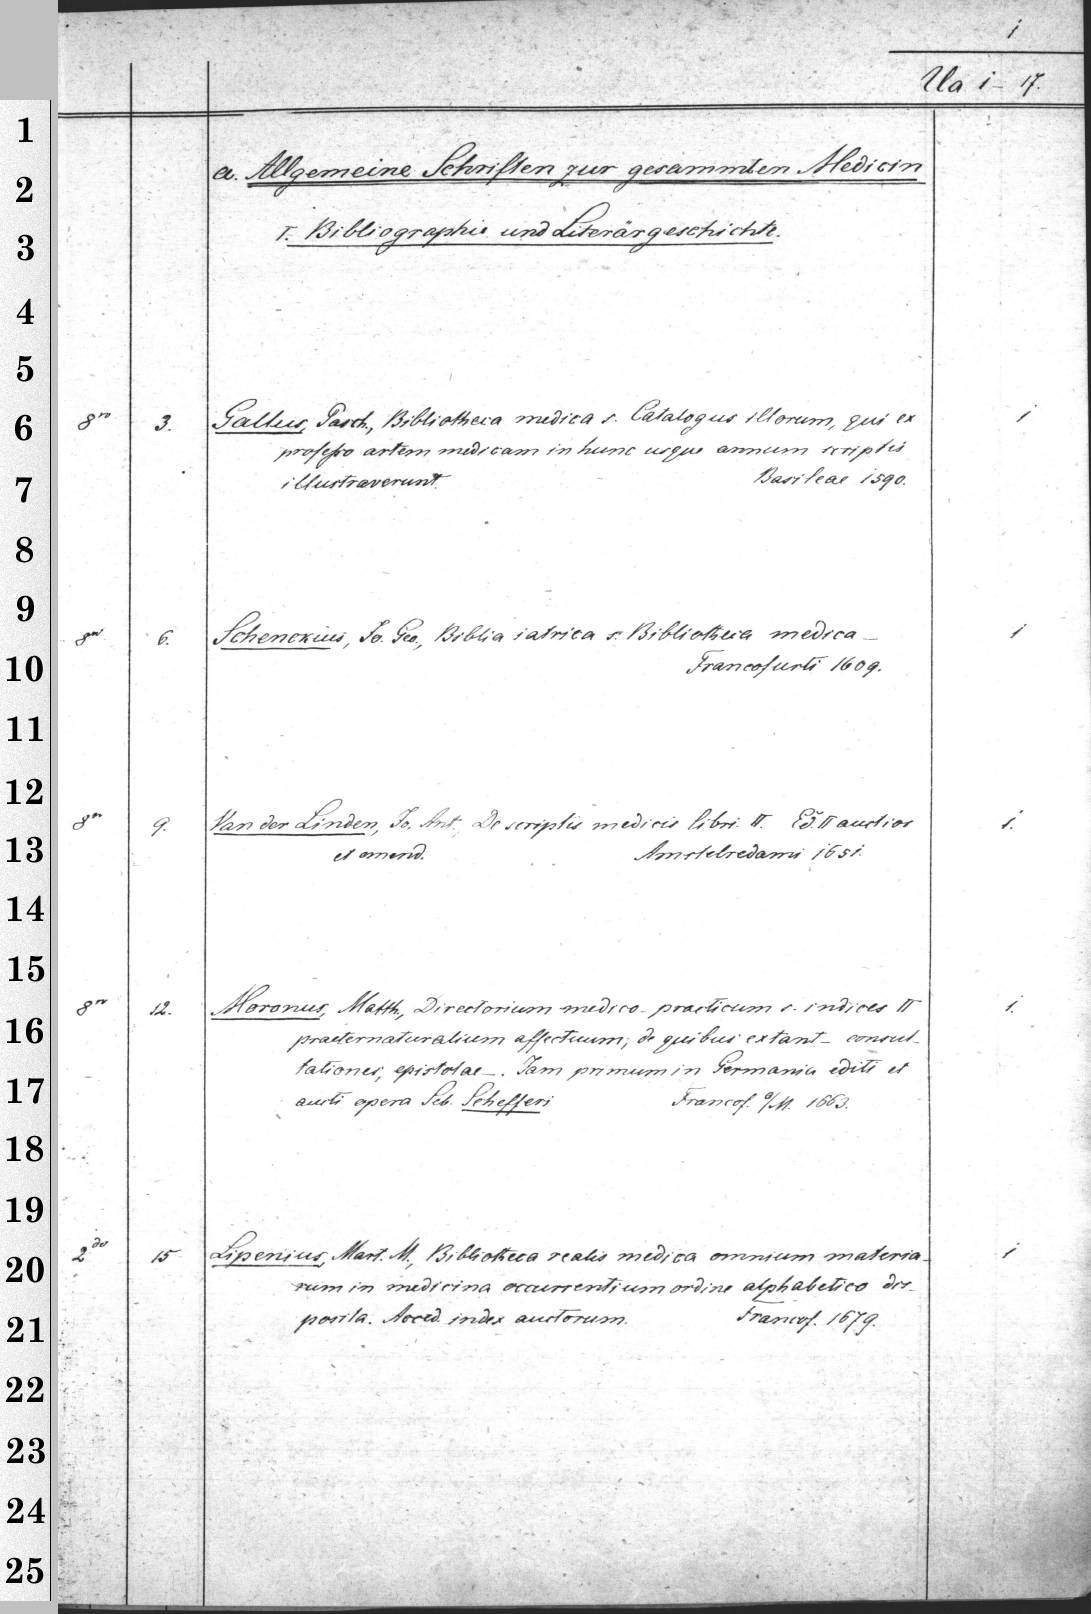 1
Ua 1 - 17.
a. Allgemeine Schriften zur gesammten Medicin
I. Bibliographie und Literärgeschichte.
8vo 3. Gallus, Pasch., Bibliotheca medica s. Catalogus illorum, qui ex 1
professo artem medicam in hunc usque annum scriptis
illustraverunt. Basileae 1590.
8vo 6. Schenckius, Jo. Geo., Biblia iatrica s. Bibliotheca medica — 1
Francofurti 1609.
8vo 9. Van der Linden, Jo. Ant., De scriptis medicis libri II. Ed. II auctior 1.
et emend. Amstelredami 1651.
8vo 12. Moronus, Matth., Directorium medico-practicum s. indices II 1.
praeternaturalium affectuum, de quibus extant — consul-
tationes, epistolae —. Jam primum in Germania editi et
aucti opera Seb. Schefferi Francof. a/M. 1663.
2do 15 Lipenius, Mart. M., Bibliotheca realis medica omnium materia- 1
rum in medicina occurrentium ordine alphabetico dis-
posita. Acced. index auctorum. Francof. 1679.
1
2
3
4
5
6
7
8
9
10
11
12
13
14
15
16
17
18
19
20
21
22
23
24
25